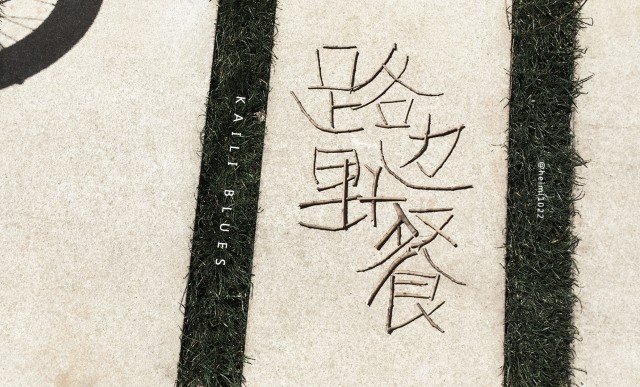 路边野餐
KAILI BLUES
@heimi1022